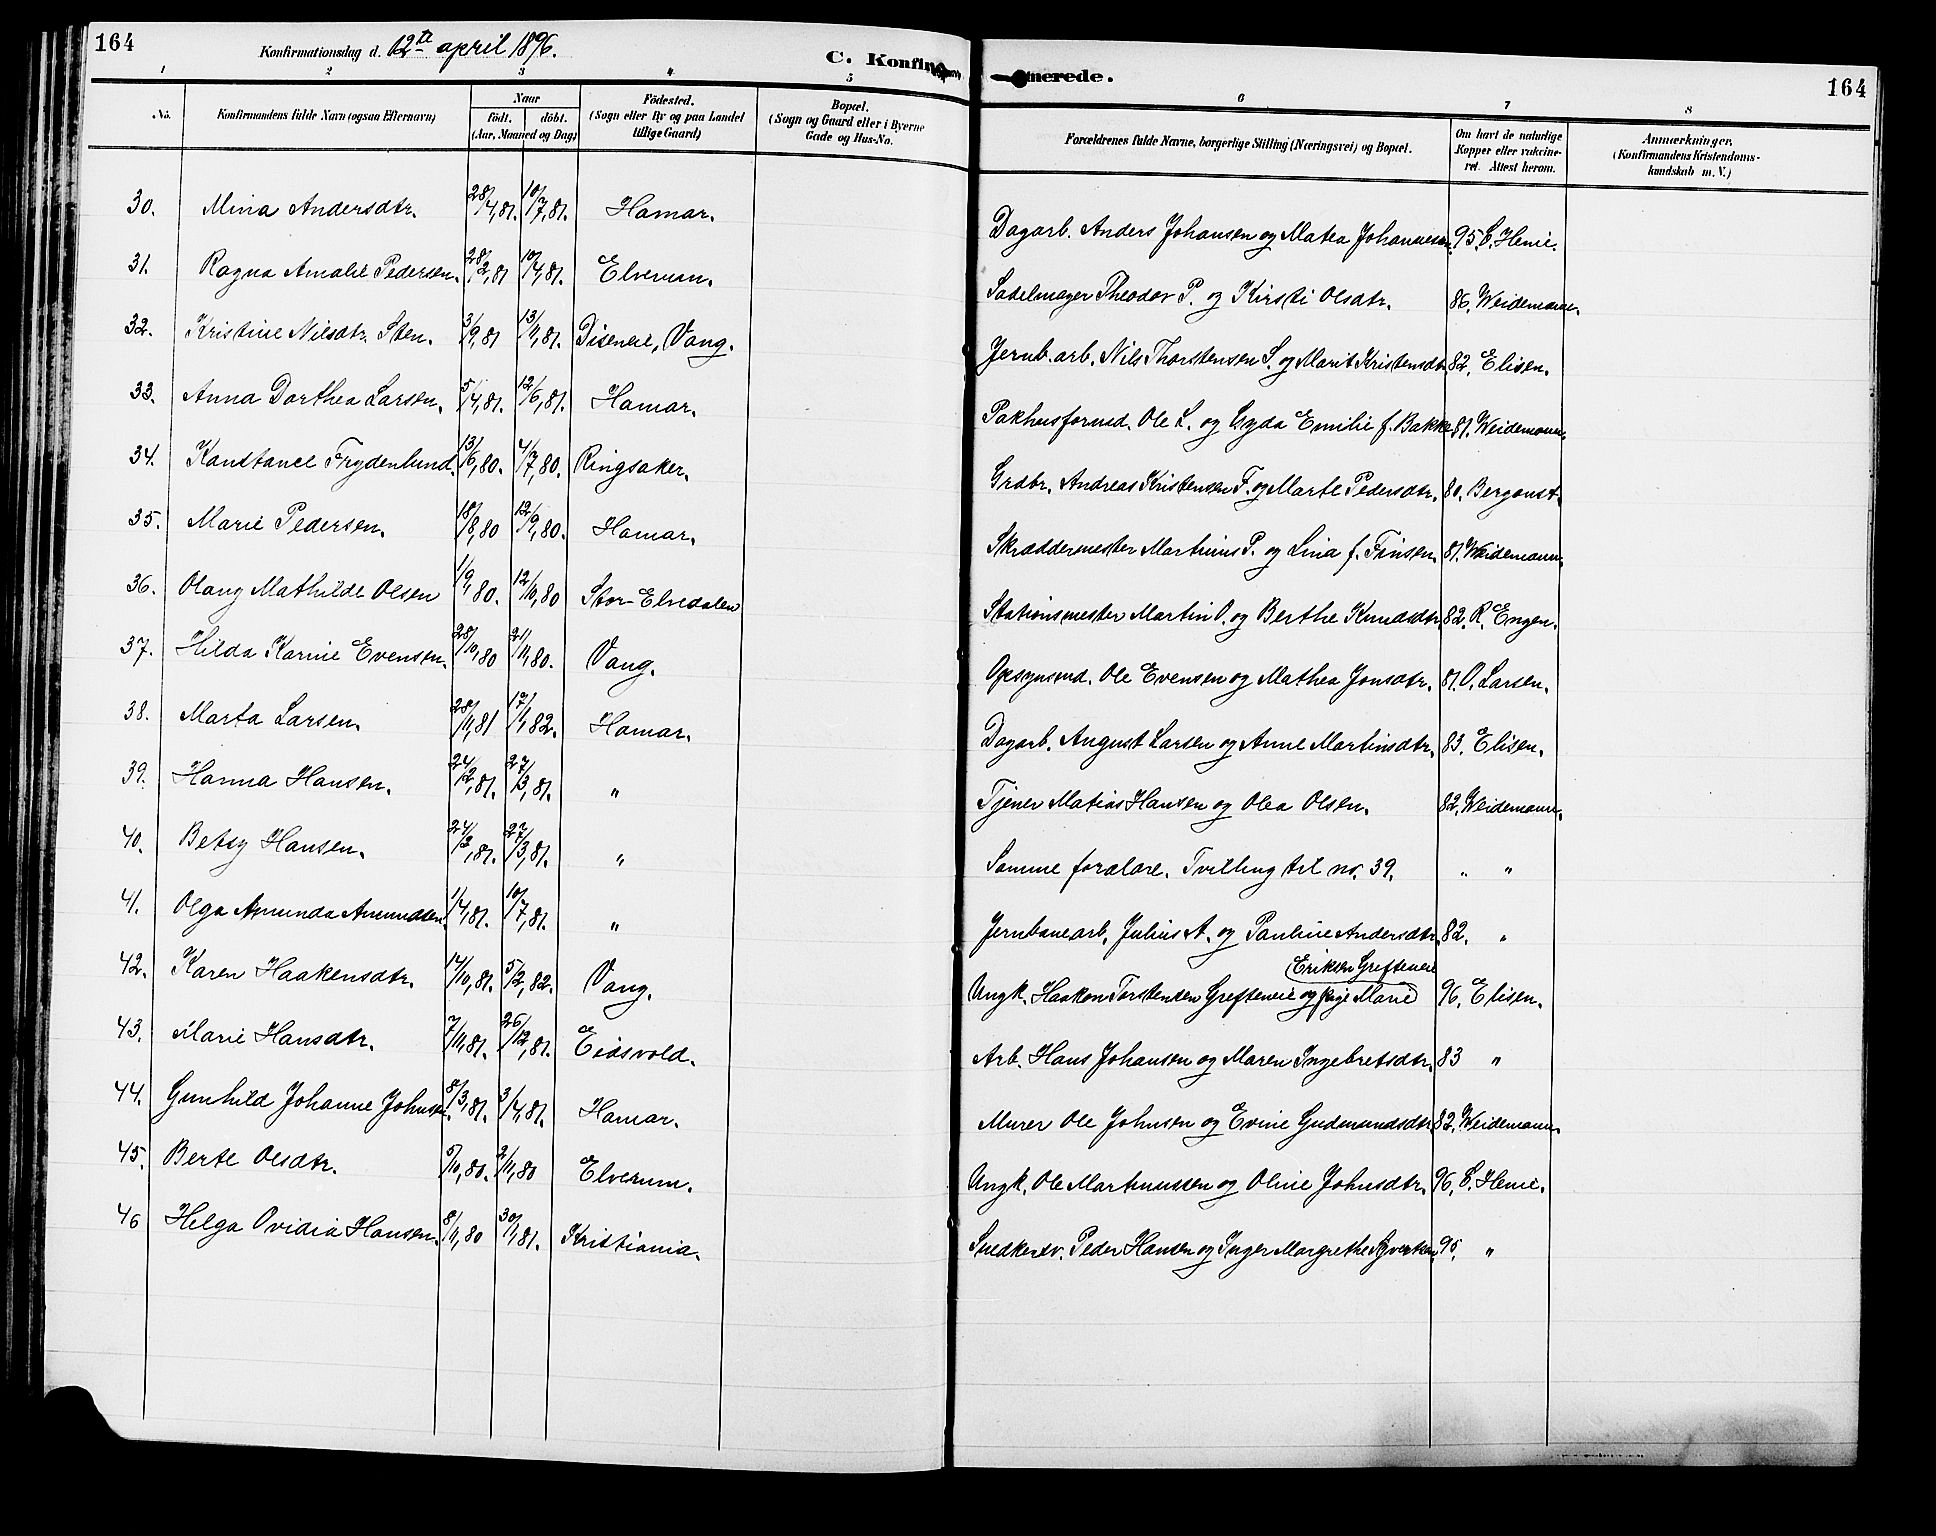 164
Konfirmationsdag d. 12te april 1896.
C. Konfirmerede.
164
1 2 3 4 5 6 7 8
No.
Konfirmandens fulde Navn (ogsaa Efternavn)
Naar
födt. döbt.
(Aar, Maaned og Dag)
Födested.
(Sogn eller By og paa Landet
tillige Gaard)
Bopæl.
(Sogn og Gaard eller i Byerne
Gade og Hus-No.
Forældrenes fulde Navne, borgerlige Stilling (Næringsvei) og Bopæl.
Om havt de naturlige
Kopper eller vaccine-
ret. Attest herom.
Anmærkninger.
(Konfirmandens Kristendoms-
kundskab m. V.)
30. Mina Andersdtr. 28/4, 81. 10/7, 81. Hamar. Dagarb. Anders Johansen og Matea Johannesen. 95. C. Henie.
31. Ragna Amalie Pedersen. 28/2, 81 10/4, 81. Elverum. Sadelmager Theodor P. og Kirsti Olsdtr. 86. Weidemann.
32. Kristine Nilsdtr. Sten. 3/9, 81 13/11, 81. Diseneie, Vang. Jernb. arb. Nils Thorstensen S. og Marit Kristensdtr. 82. Elisen.
33. Anna Dorthea Larsen. 5/4, 81. 12/6, 81. Hamar. Pakhusformd. Ole L. og Gyda Emilie f. Bakke 81. Weidemann.
34. Konstance Frydenlund. 13/6, 80. 4/7, 80. Ringsaker. Grdbr. Andreas Kristensen F. og Marte Pedersdtr. 80. Bergans t.
35. Marie Pedersen. 18/8, 80 12/9, 80. Hamar. Skræddermester Martinius P. og Lina f. Finsen. 81. Weidemann.
36. Olaug Mathilde Olsen 1/9, 80. 12/10, 80 Stor-Elvedalen Stationsmester Martin O. og Berthe Knudsdtr. 82. R. Engen.
37. Hilda Karine Evensen. 28/10, 80 21/11, 80. Vang. Opsynsmd. Ole Evensen og Mathea Jonsdtr. 81. O. Larsen.
38. Marta Larsen. 28/11, 81 17/1, 82. Hamar. Dagarb. August Larsen og Anne Martinsdtr. 83. Elisen.
39. Hanna Hansen. 24/2, 81. 27/3, 81. " Tjener Matias Hansen og Olea Olsen. 82. Weidemann.
40. Betsy Hansen. 24/2, 81. 27/3, 81. " Samme forældre. Tvilling til no. 39. " "
41. Olga Amunda Amundsen. 1/4, 81. 10/7, 81. " Jernbanearb. Julius A. og Pauline Andersdtr. 82. "
42. Karen Haakensdtr. 14/10, 81. 5/2, 82. Vang. Ungk. Haakon Torstensen Grefteneie og Pige Marie Eriksen Grefteneie 96. Elisen.
43. Marie Hansdtr. 7/11, 81. 26/12, 81. Eidsvold. Arb. Hans Johansen og Maren Ingebretsdtr. 83 "
44. Gunhild Johanne Johnsen. 8/3, 81. 3/4, 81. Hamar. Murer Ole Johnsen og Evine Gudmundsdtr 82. Weidemann.
45. Berte Olsdtr. 5/10, 80. 2/11, 80 Elverum. Ungk. Ole Martinussen og Oline Johnsdtr. 96. C. Henie.
46 Helga Ovidia Hansen. 8/11, 80 30/1, 81. Kristiania. Snedkersv. Peder Hansen og Inger Margrethe Syvertsen. 95. "